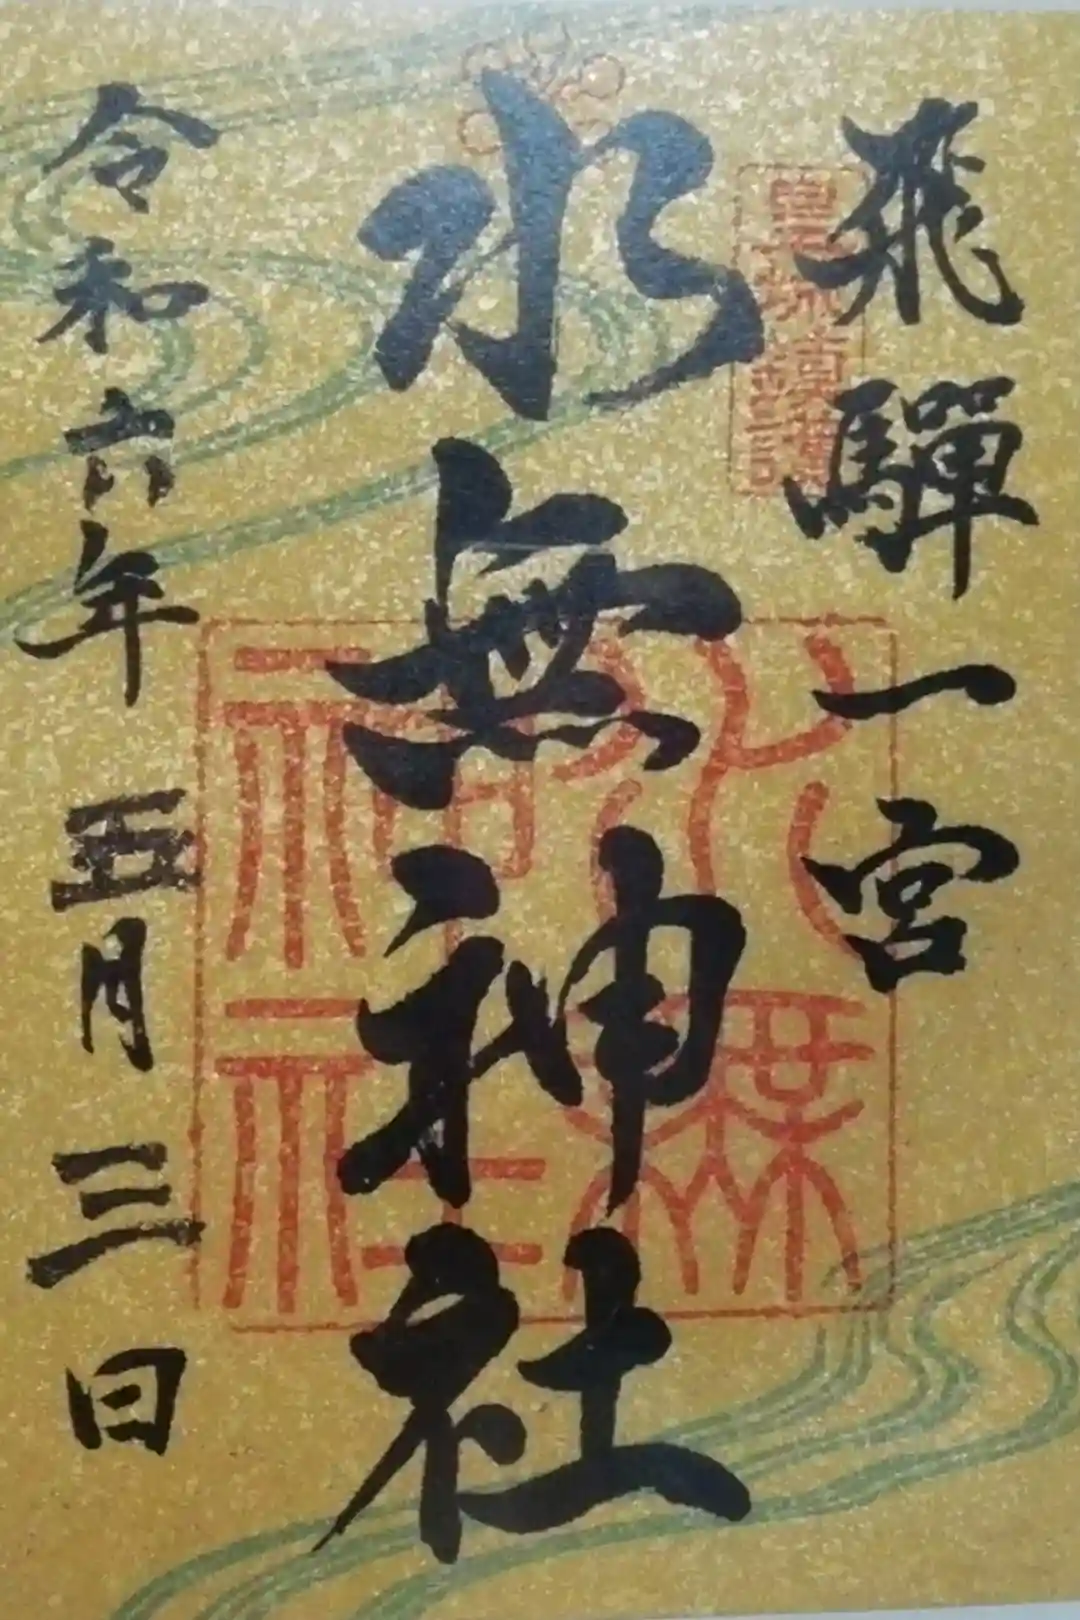 飛騨一宮
水無神社
令和六年五月三日
水無神社